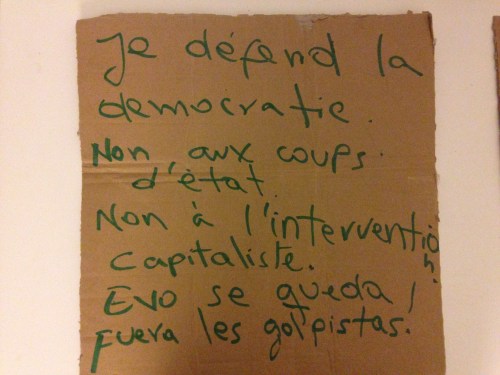 Je défend la
democratie.
Non aux coups
d'état.
Non à l'intervention
capitaliste.
Evo se queda!
Fuera les golpistas.